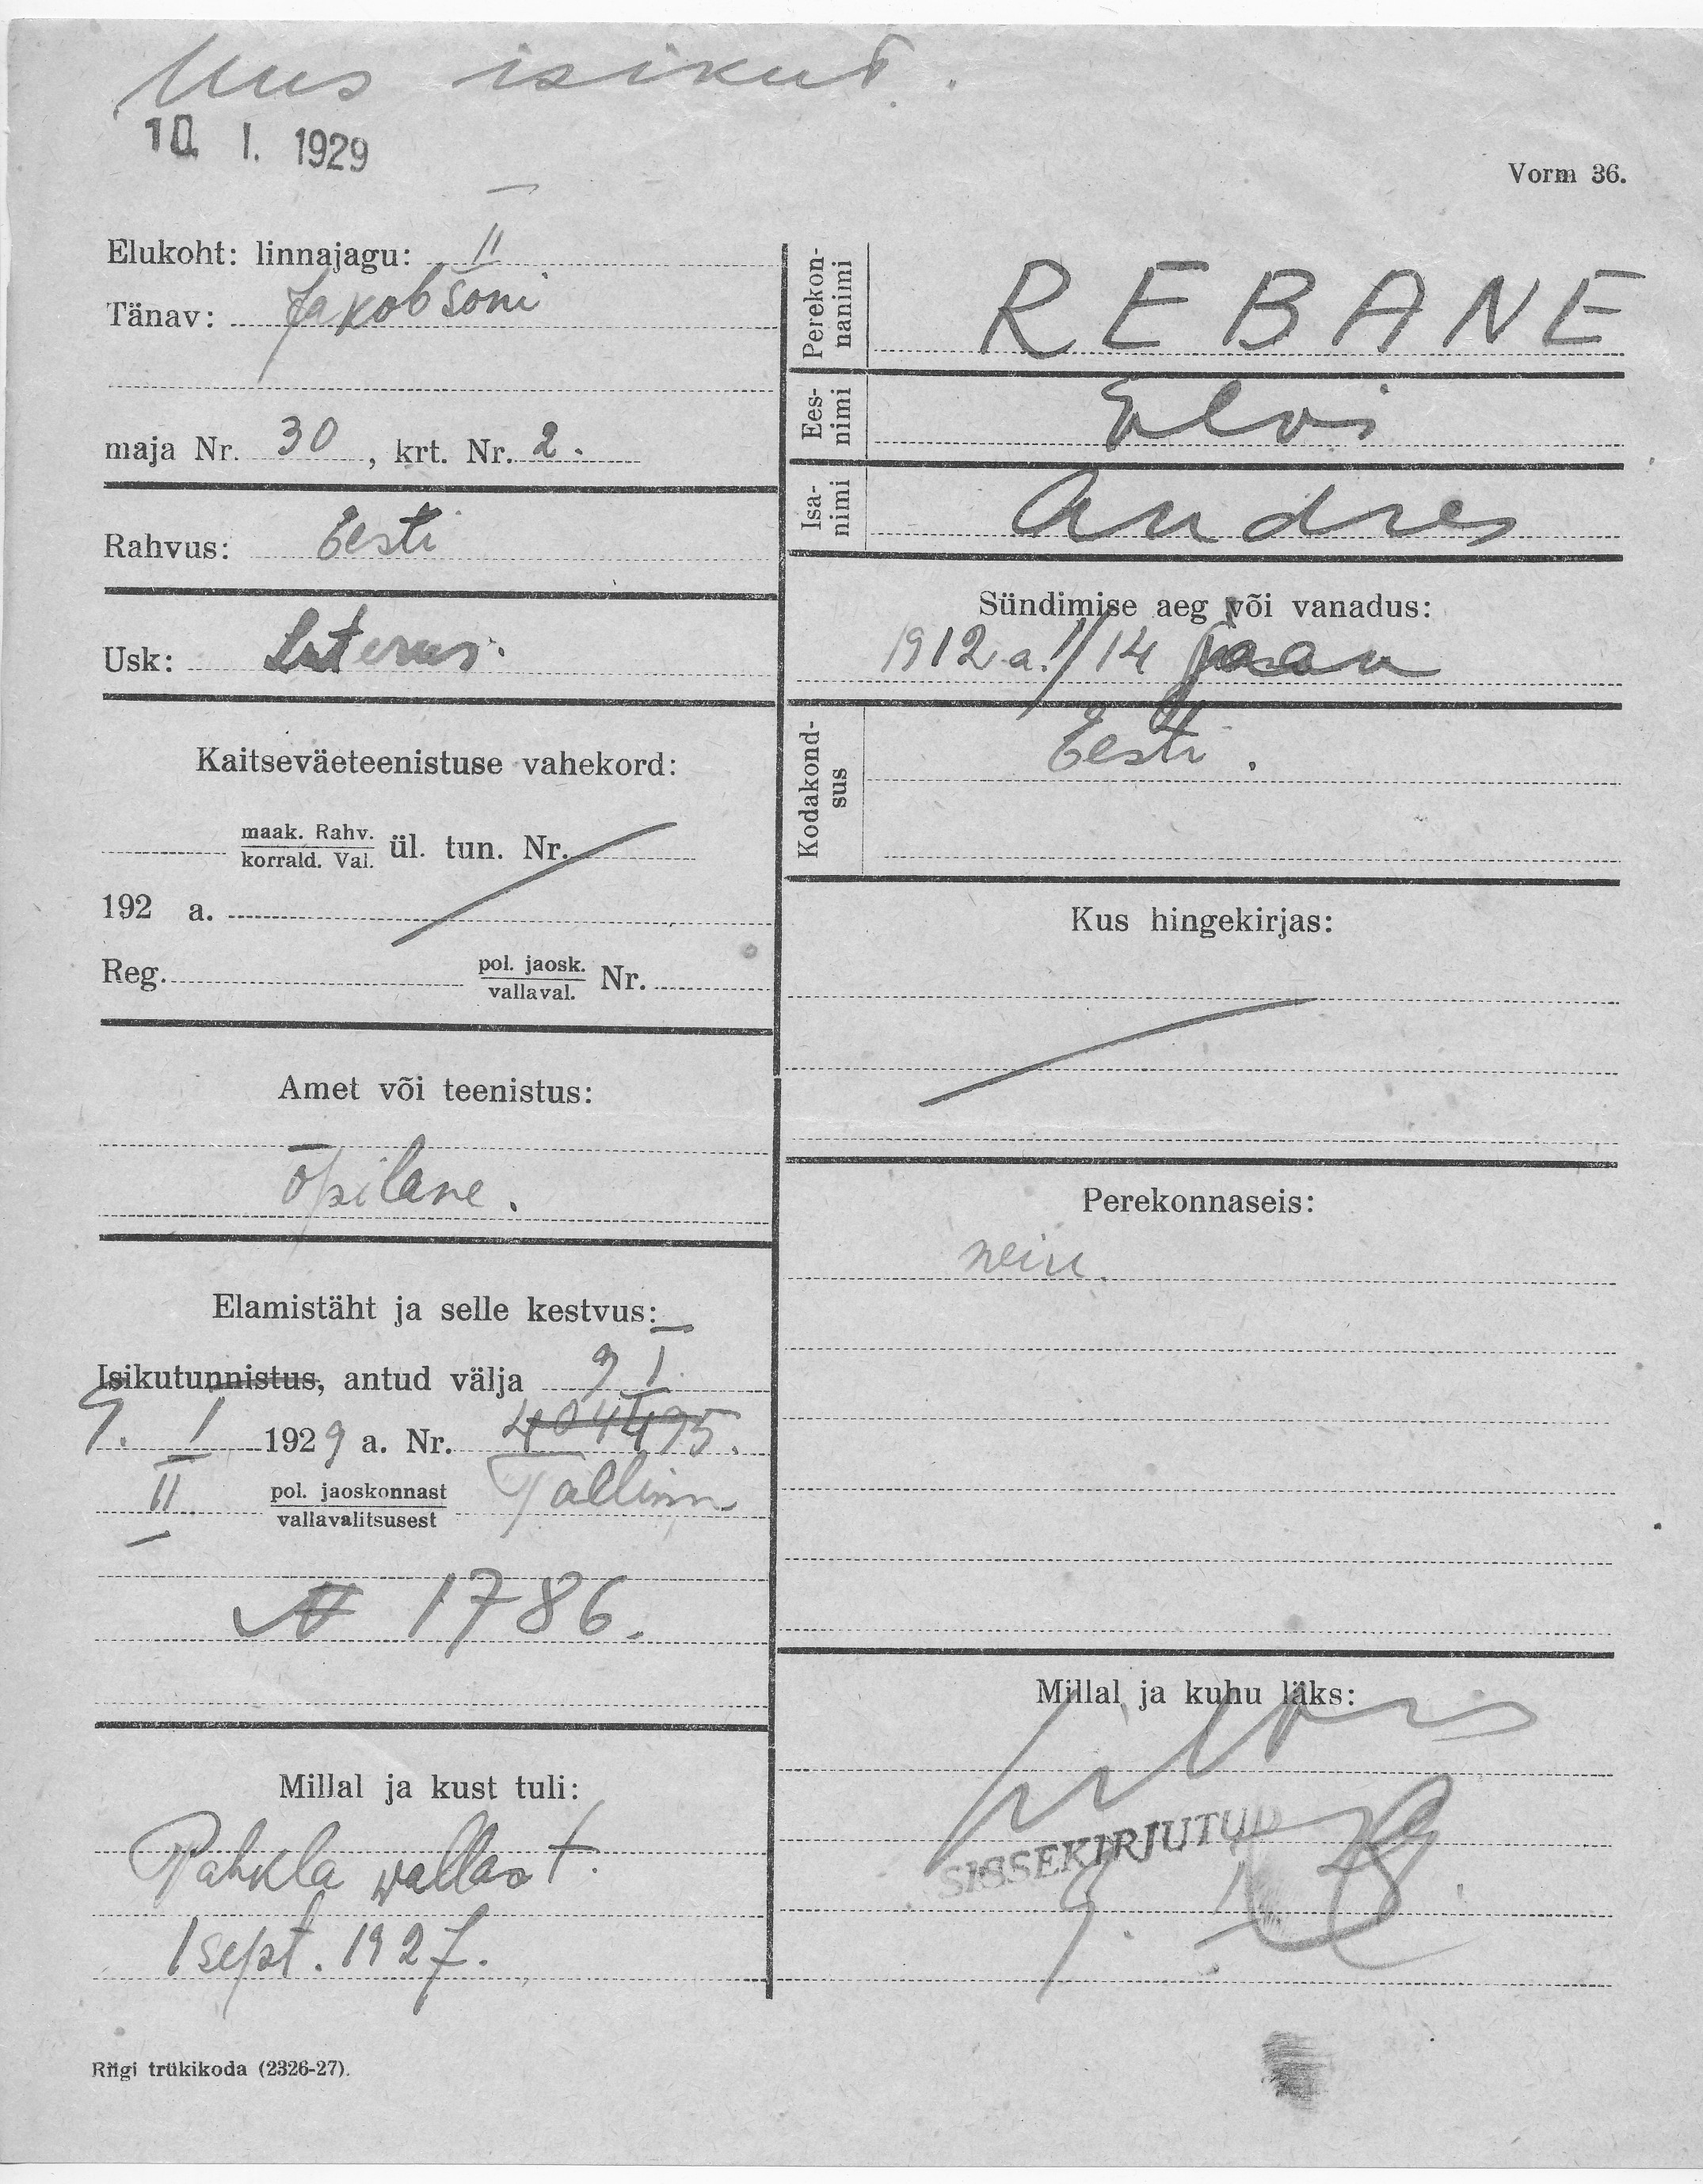 Uus isikut.
10. I. 1929
Vorm 36.
Elukoht: linnajagu: II
Tänav: Jakobsoni
maja Nr. 30, krt. Nr. 2.
Rahvus: Eesti
Usk: Luterus.
Kaitseväeteenistuse vahekord:
maak. Rahv.
korrald. Val. ül. tun. Nr.
192 a.
Reg. pol. jaosk.
vallaval. Nr.
Amet või teenistus:
õpilane.
Elamistäht ja selle kestvus:
Isikutunnistus, antud välja 9 I
9. I 1929 a. Nr.
II pol. jaoskonnast Tallinn
vallavalitsusest
N 1786.
Millal ja kust tuli:
Pahkla wallast.
1 sept. 1927.
Riigi trükikoda (2326-27).
Perekon-
nanimi
REBANE
Ees-
nimi
Elvi
Isa-
nimi
Andres
Sündimise aeg või vanadus:
1912 a. 1/14 jaan
Kodakond-
sus
Eesti.
Kus hingekirjas:
Perekonnaseis:
neiu.
Millal ja kuhu läks:
SISSEKIRJUTUD
9. I